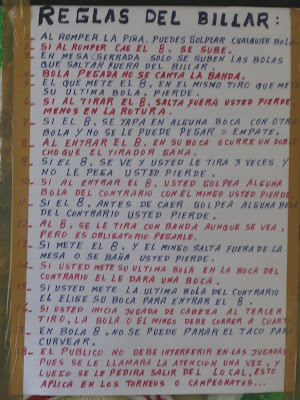 REGLAS DEL BILLAR:
1- AL ROMPER LA PIÑA, PUEDES GOLPEAR CUALQUIER BOLA
2- SI AL ROMPER CAE EL 8, SE SUBE.
3- EN MESA CERRADA SOLO SE SUBEN LAS BOLAS
QUE SALTAN FUERA DEL BILLAR.
4- BOLA PEGADA NO SE CANTA LA BANDA.
5- EL QUE METE EL 8, EN EL MISMO TIRO QUE METE
SU ULTIMA BOLA, PIERDE.
6- SI AL TIRAR EL 8, SALTA FUERA USTED PIERDE
MENOS EN LA ROTURA.
7- SI EL 8, SE TAPA EN ALGUNA BOCA CON OTRA
BOLA Y NO SE LE PUEDE PEGAR = EMPATE.
8- AL ENTRAR EL 8, EN SU BOCA OCURRE UN DOBLE
CHOQUE EL TIRADOR GANA.
9- SI EL 8, SE VE Y USTED LE TIRA 3 VECES Y
NO LE PEGA USTED PIERDE.
10- SI AL ENTRAR EL 8, USTED GOLPEA ALGUNA
BOLA DEL CONTRARIO CON EL MINGO USTED PIERDE
11- SI EL 8, ANTES DE CAER GOLPEA ALGUNA BOLA
DEL CONTRARIO USTED PIERDE.
12- AL 8, SE LE TIRA CON BANDA AUNQUE SE VEA,
PERO ES OBLIGATORIO PEGARLE.
13- SI METE EL 8, Y EL MINGO SALTA FUERA DE LA
MESA O SE BAÑA USTED PIERDE.
14- SI USTED METE SU ULTIMA BOLA EN LA BOCA DEL
CONTRARIO EL LE DARA UNA BOCA.
15- SI USTED METE LA ULTIMA BOLA DEL CONTRARIO
EL ELIGE SU BOCA PARA ENTRAR EL 8.
16- SI USTED INICIA JUGADA DE CABEZA AL TERCER
TIRO, LA BOLA O EL MINGO DEBE CORRER 2 CUARTAS
17- EN BOLA 8, NO SE PUEDE PARAR EL TACO PARA
CURVEAR.
18- EL PUBLICO NO DEBE INTERFERIR EN LAS JUGADAS
PUES SE LE LLAMARA LA ATENCION UNA VEZ, Y
LUEGO SE LE PEDIRA SALIR DEL LOCAL, ESTO
APLICA EN LOS TORNEOS O CAMPEONATOS...